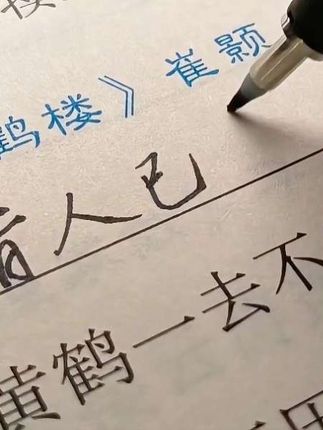 鹤楼》崔颢
人已
黄鹤一去不